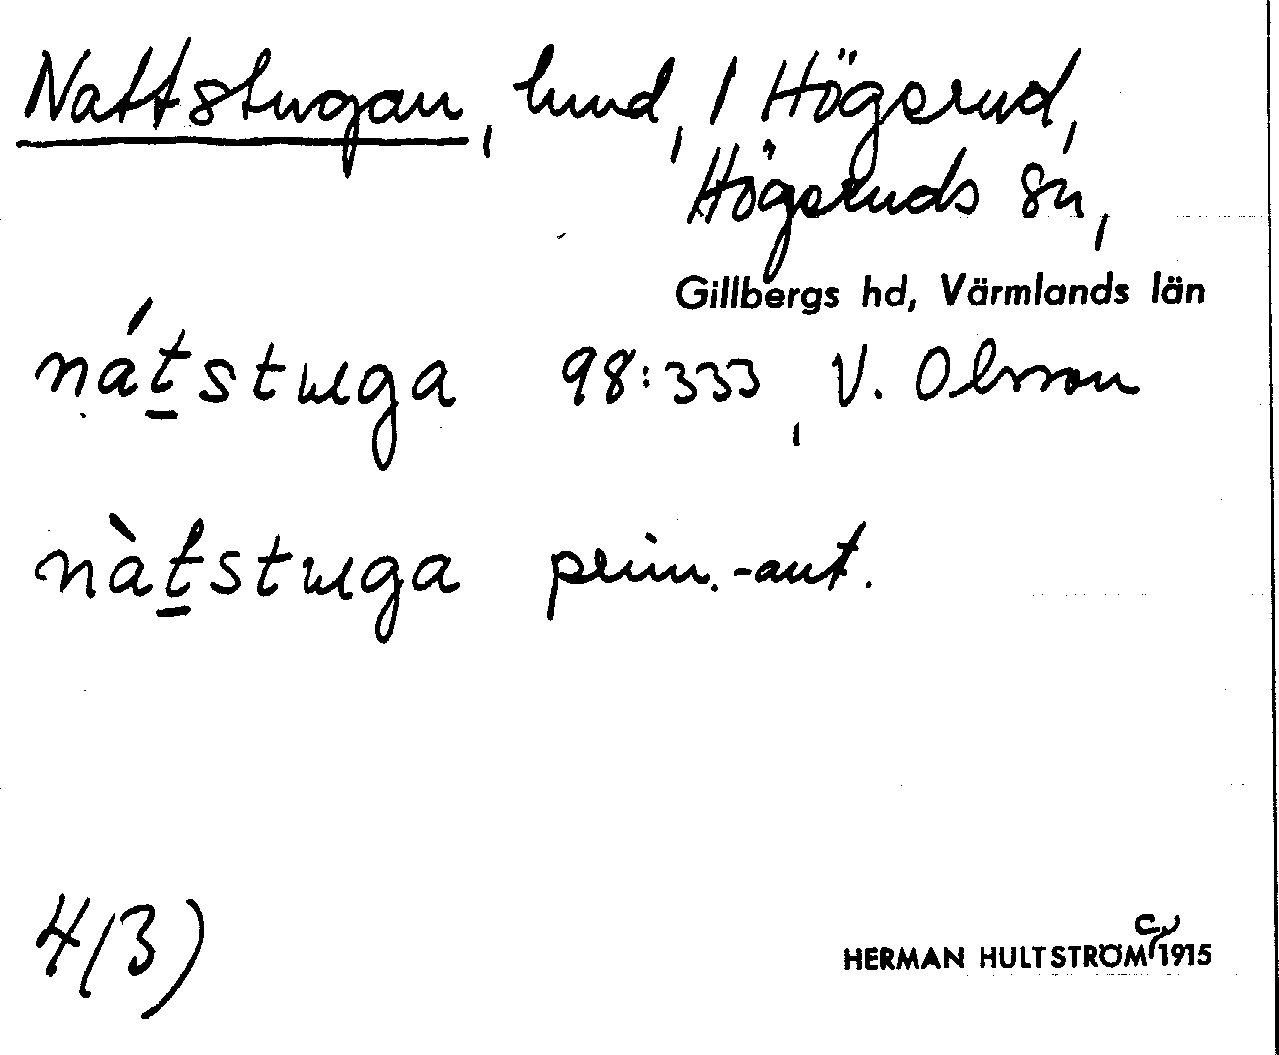 Nattstugan, lund, 1 Högsrud,
Högsruds sn,
Gillbergs hd, Värmlands län
nát̲stuga 98:333, V. Olsson
nàt̲stuga prim.-ant.
4(3)
HERMAN HULTSTRÖM c. 1915